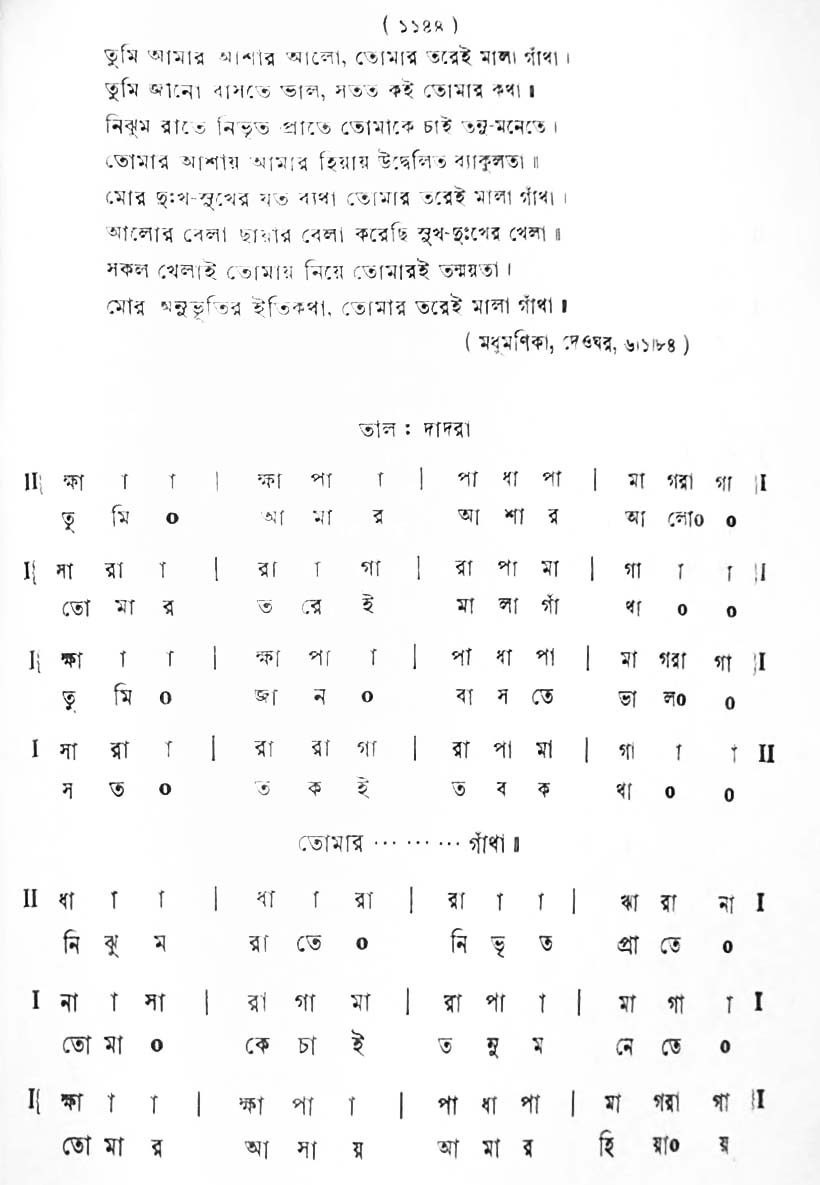 ( ১১৪৪ )
তুমি আমার আশার আলো, তোমার তরেই মালা গাঁথা ।
তুমি জানো বাসতে ভাল, সতত কই তোমার কথা ॥
নিঝুম রাতে নিভৃত প্রাতে তোমাকে চাই তনু-মনেতে ।
তোমার আশায় আমার হিয়ায় উদ্বেলিত ব্যাকুলতা ॥
মোর দুঃখ-সুখের যত ব্যথা তোমার তরেই মালা গাঁথা ।
আলোর বেলা ছায়ার বেলা করেছি সুখ-দুঃখের খেলা ॥
সকল খেলাই তোমায় নিয়ে তোমারই তন্ময়তা ।
মোর অনুভূতির ইতিকথা, তোমার তরেই মালা গাঁথা ॥
( মধুমণিকা, দেওঘর, ৬।১।৮৪ )
তাল : দাদরা
II{ ক্ষা া া | ক্ষা পা া | পা ধা পা | মা গরা গা }I
তু মি ০ আ মা র আ শা র আ লো০ ০
I{ সা রা া | রা া গা | রা পা মা | গা া া }I
তো মা র ত রে ই মা লা গাঁ থা ০ ০
I{ ক্ষা া া | ক্ষা পা া | পা ধা পা | মা গরা গা }I
তু মি ০ জা ন ০ বা স তে ভা ল০ ০
I সা রা া | রা রা গা | রা পা মা | গা া া II
স ত ০ ত ক ই ত ব ক থা ০ ০
তোমার ... ... ... গাঁথা ॥
II ধা া া | ধা া রা | রা া া | ঋা রা না I
নি ঝু ম রা তে ০ নি ভৃ ত প্রা তে ০
I না া সা | রা গা মা | রা পা া | মা গা া I
তো মা ০ কে চা ই ত নু ম নে তে ০
I{ ক্ষা া া | ক্ষা পা া | পা ধা পা | মা গরা গা }I
তো মা র আ সা য় আ মা র হি য়া০ য়